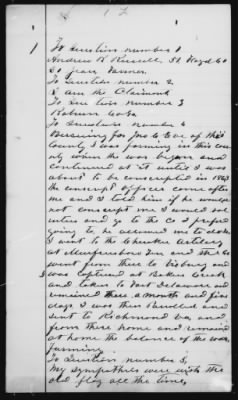 1
To Question number 1
Andrew R Russell, 52
50 years Farmer
To Question number 2
I am the Claimant
To Question number 3
Robison
To Question number 4
for Jno C of this
County I was farming in this coun
ty when the war began and
continued at it until I was
about to be conscripted in 1863
the conscript officer came after
me and I told him if he would
not conscript me I would vol
enteer and go to the Co I prefer
going to, he allowed me to do so
I went to the Cherokee Artillery
at Murfreesboro Ten and the Co
went from there to Vicksburg and
was captured at Bakers Creek
and taken to Fort Delaware and
remained there a month and five
days I was then and
sent to Richmond Va and
from there home and remained
at home the balance of the war
farming
To Question number 5,
My sympathies were with the
old flag all the time